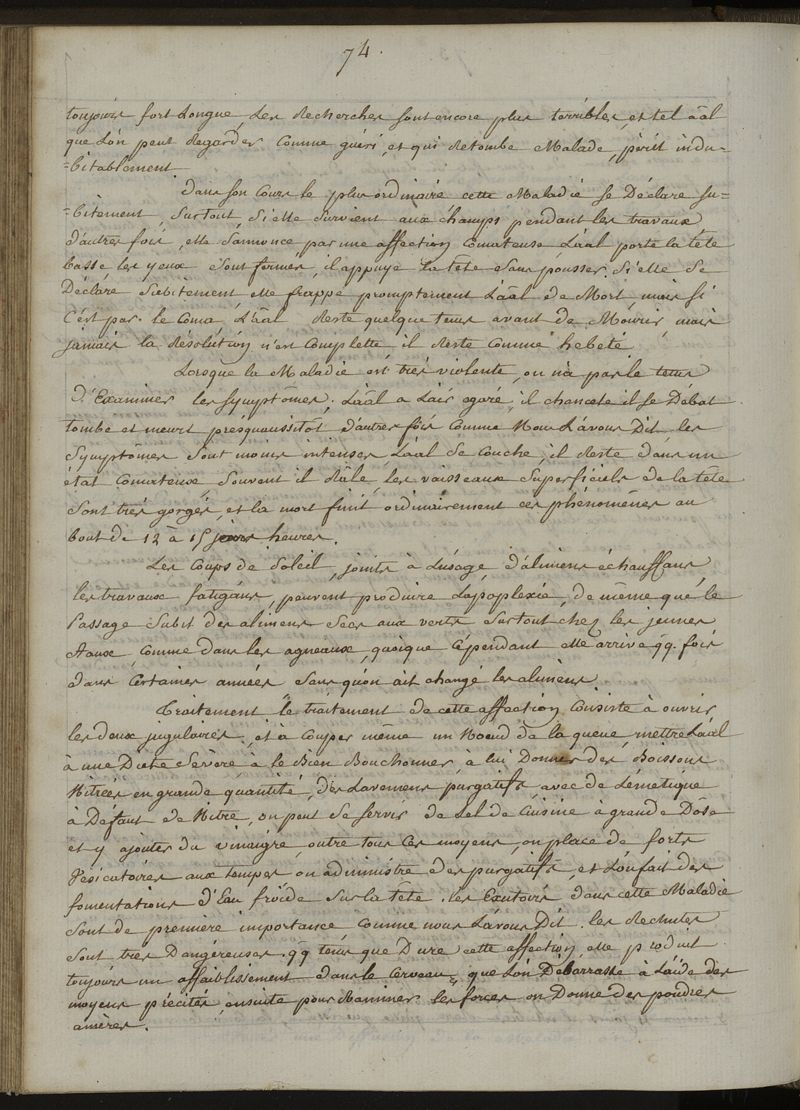 74.
toujours fort Longue, Les Rechercher sont encore plus terribles, et tel aâl
que L'on peut Regarder Comme guéri, et qui Retombe Malade, périt indu-
-bitablement.
Dans son Cours le plus ordinaire cette Maladie se Déclare su-
-bitement, surtout, si elle survient aux champs pendant les travaux
d'autres fois, elle s'annonce par une affection Comateuse, L'aâl porte la tête
basse les yeux sont fermés, il appuye la tête sans pousser. Si elle se
Déclare subitement elle frappe promptement L'aâl de Mort, mais si
C'est par le Coma L'aâl Reste quelque tems avant de Mourir, mais
jamais la Résolution n'est Complette il Reste Comme hebeté
Lorsque la Maladie est très violente, on n'a pas le tems
D'Examiner les symptômes, L'aâl a L'air egaré, il chancele il se Débat
tombe et meurt presqu'aussitôt d'autres fois Comme Nous L'avons Dit les
Symptômes sont moins intenses, L'aâl se Couche, il Reste dans un
état Comateux, souvent il Râle, les vaisseaux superficiels de la tête
sont très gorgés, et la mort finit ordinairement ces phénomènes au
bout de 12 à 15 jours heures.
Les Coups de Soleil, joints à L'usage d'alimens échauffans,
les travaux fatigans, peuvent produire L'apoplexie, de même que le
Passage subit des alimens secs aux verts surtout chez les jeunes
Aaux, Comme dans les agneaux, quoique Cépendant elle arrive qq. fois
dans Certaines années sans qu'on ait changé les alimens.
Traitement le traitement de cette affection Consiste à ouvrir
les deux jugulaires, et à Couper même un Noeud de la queue, mettre L'aâl
à une Diete Sévère à le Bien Bouchonner, à lui Donner des Boissons
Nitrées en grande quantité, des Lavemens purgatifs avec de L'émetique
à Défaut de Nitre, on peut se servir de Sel de Cuisine à grande Dose
et y ajouter du vinaigre, outre tous Ces moyens, on place de forts
Vesicatoires aux tempes on administre des purgatifs, et L'on fait des
fomentations d'Eau froide sur la tête. les Exutoires dans cette Maladie
sont de première importance, Comme nous L'avons Dit. les Rechutes
sont très Dangéreuses. qq tems que Dure cette affection, elle produit
toujours un affaiblissement dans le Cerveau, que L'on Débarrasse à L'aide des
moyens précités, ensuite pour Ranimer les forces on Donne des poudres
amères.